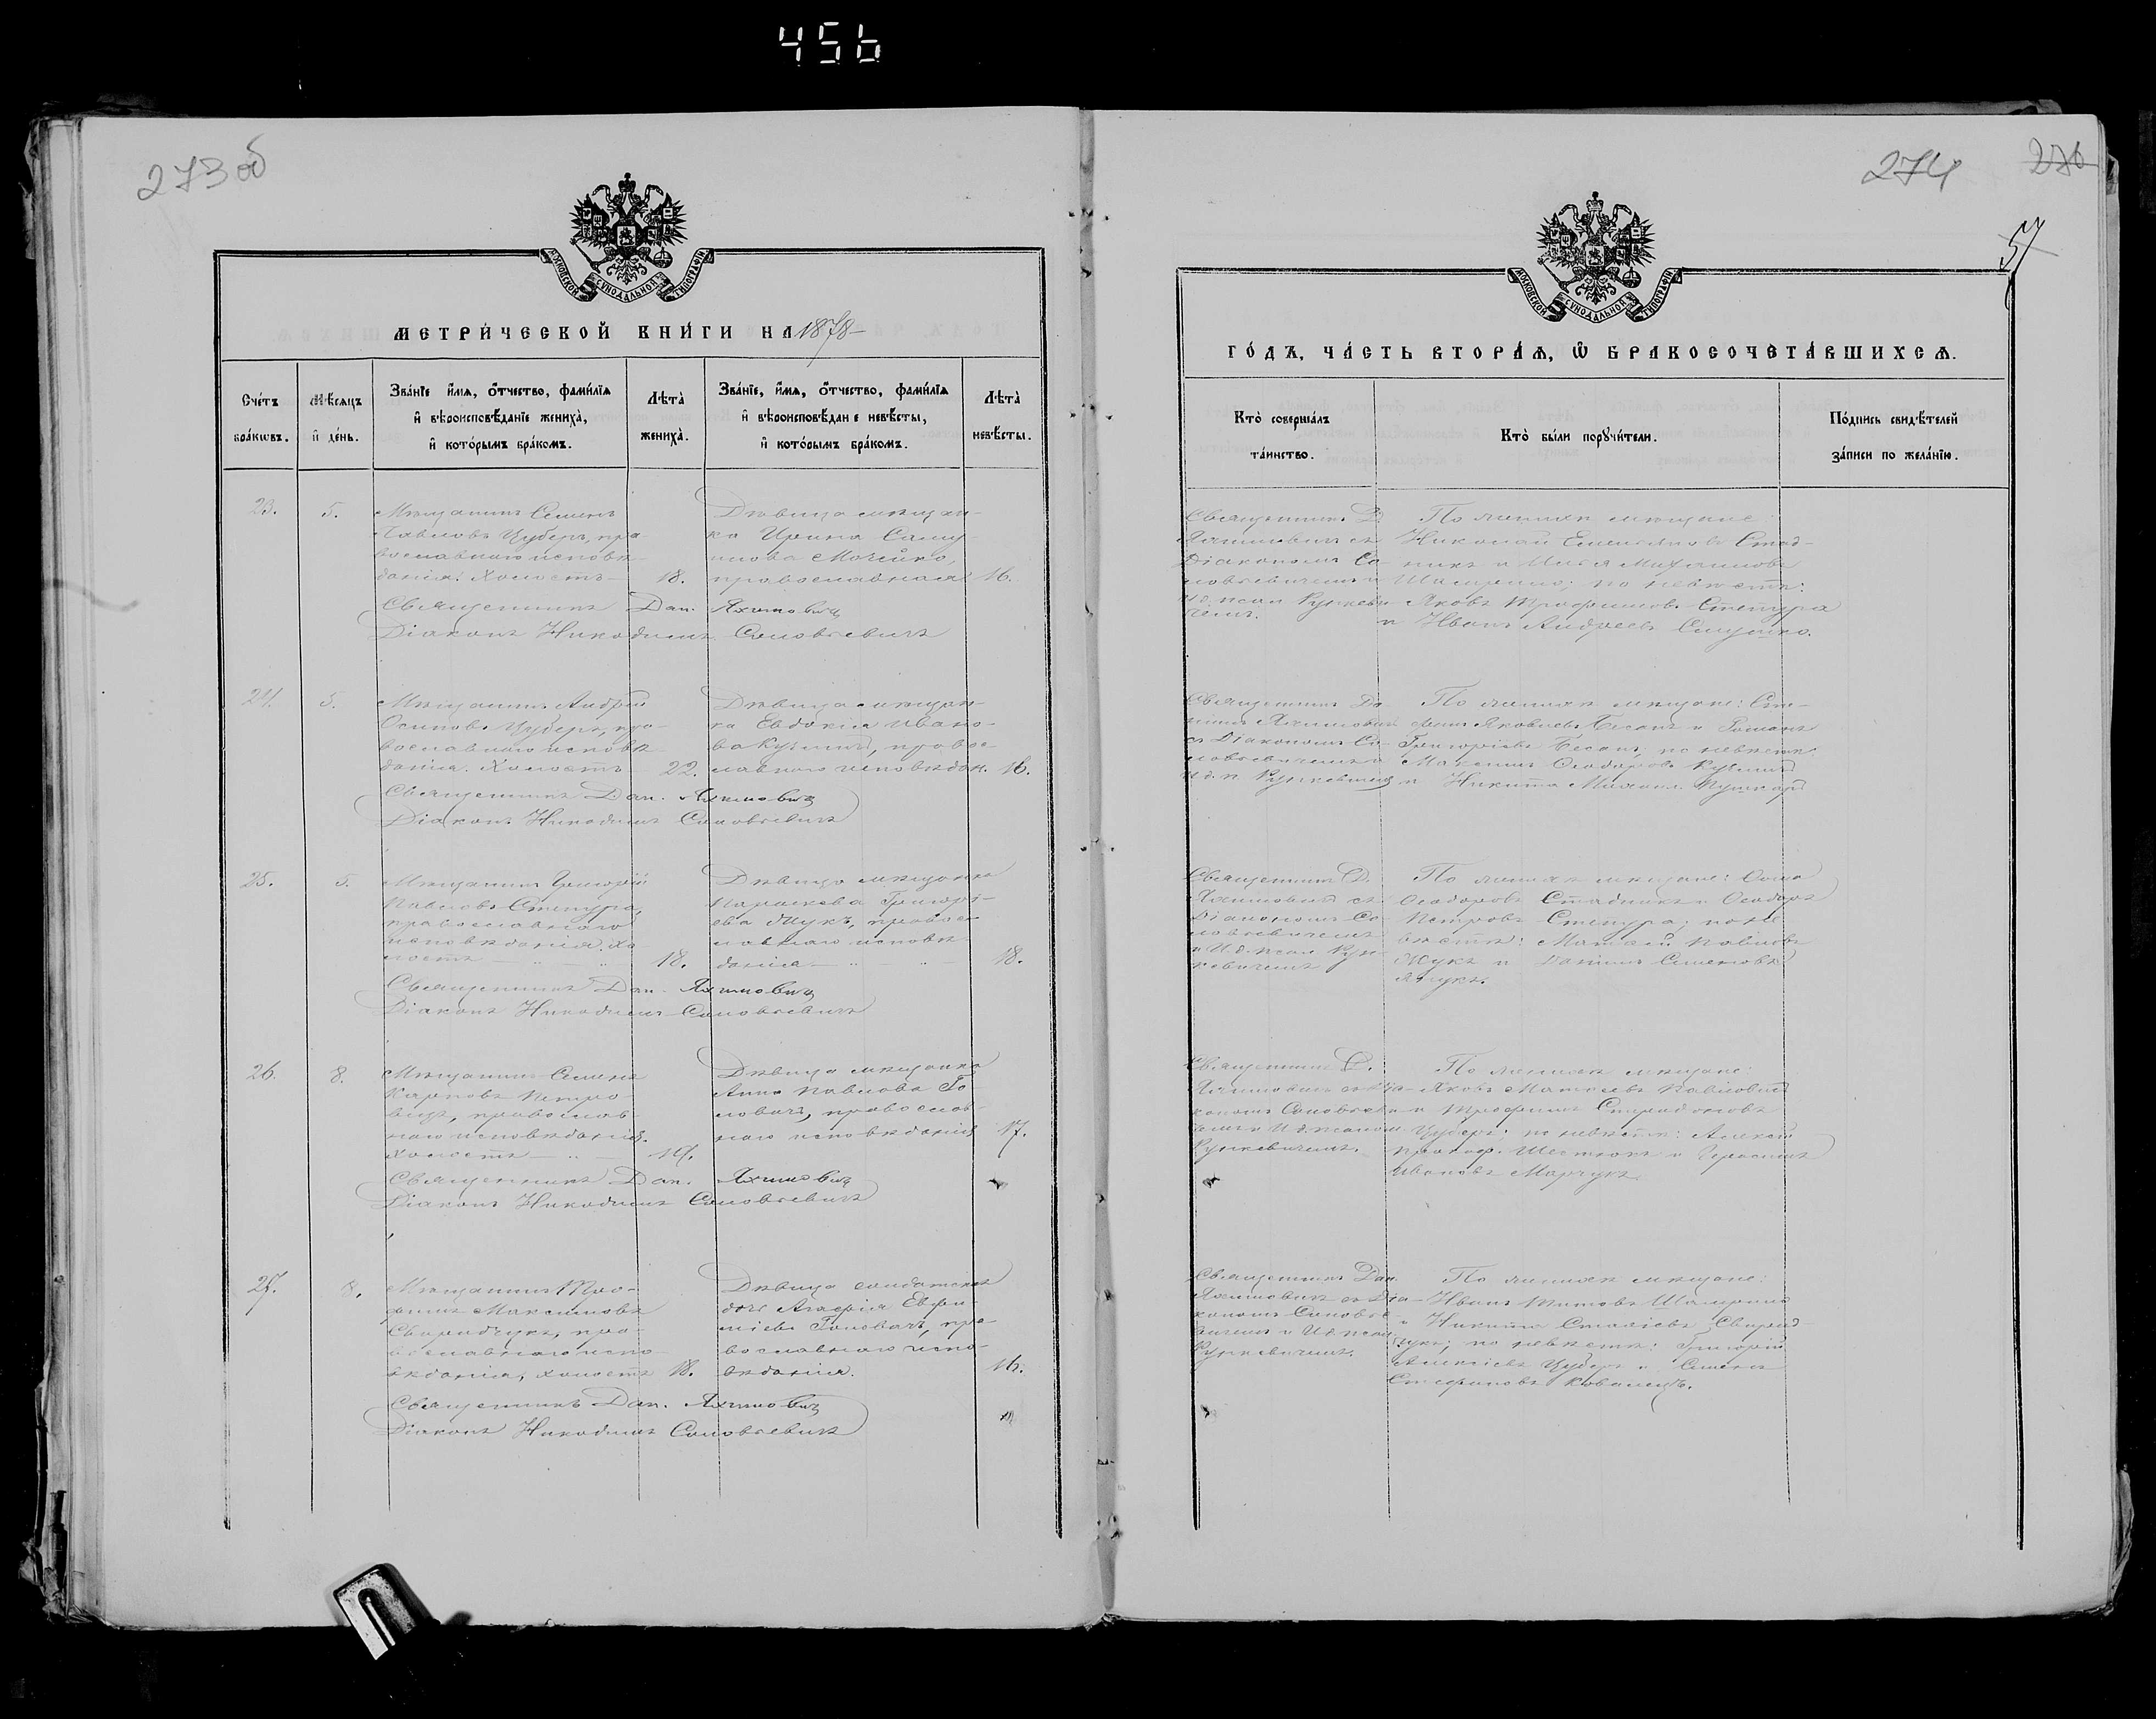 456
273 об
МОСКОВСКОЙ СѴНОДАЛЬНОЙ ТИПОГРАФІИ
МЕТРИ́ЧЕСКОЙ КНИ́ГИ НА 1878
Сче́тъ бра́кѡвъ.
Мѣ́сяцъ и҆ де́нь.
Зва́нїе и҆́мѧ, о҆́тчество, фами́лїѧ
и҆ вѣроисповѣ́данїе жениха̀,
и҆ кото́рымъ бра́комъ.
Лѣта̀ жениха̀.
Зва́нїе, и҆́мѧ, о҆́тчество, фами́лїѧ
и҆ вѣроисповѣ́данїе невѣ́сты,
и҆ кото́рымъ бра́комъ.
Лѣта̀ невѣ́сты.
23.
5.
Мѣщанинъ Семенъ
Павловъ Цуберъ, пра-
вославнаго исповѣ-
данія. Холостъ
18.
Дѣвица мѣщан-
ка Ирина Самуи-
лова Мочейко,
православная
16.
Священникъ Дан. Яхимовичъ
Діаконъ Никодимъ Соловьевичъ
24.
5.
Мѣщанинъ Андрей
Осиповъ Цуберъ, пра-
вославнаго исповѣ-
данія. Холостъ
22.
Дѣвица мѣщан-
ка Евдокія Ивано-
ва Кузьмич, правос-
лавнаго исповѣдан.
16.
Священникъ Дан. Яхимовичъ
Діаконъ Никодимъ Соловьевичъ
25.
5.
Мѣщанинъ Григорій
Павловъ Степура,
православнаго
исповѣданія. Хо-
лостъ
18.
Дѣвица мѣщанка
Параскева Григорі-
ева Жукъ, правос-
лавнаго исповѣ-
данія
18.
Священникъ Дан. Яхимовичъ
Діаконъ Никодимъ Соловьевичъ
26.
8.
Мѣщанинъ Семенъ
Карповъ Петро-
вецъ, православ-
наго исповѣданія.
Холостъ
19.
Дѣвица мѣщанка
Анна Павлова Го-
ловачъ, православ-
наго исповѣданія
17.
Священникъ Дан. Яхимовичъ
Діаконъ Никодимъ Соловьевичъ
27.
8.
Мѣщанинъ Тро-
фимъ Максимовъ
Свиридчукъ, пра-
вославнаго испо-
вѣданія, холостъ
18.
Дѣвица солдатская
дочь Агафія Евфи-
міева Головачъ, пра-
вославнаго испо-
вѣданія.
16.
Священникъ Дан. Яхимовичъ
Діаконъ Никодимъ Соловьевичъ
274
276
57
МОСКОВСКОЙ СѴНОДАЛЬНОЙ ТИПОГРАФІИ
ГО́ДЪ, ЧА́СТЬ ВТОРА́Ѧ, Ѡ҆ БРАКОСОЧЕТА́ВШИХСѦ.
Кто̀ соверша́лъ
та́инство.
Кто̀ бы́ли порꙋчи́тели.
По́дпись свидѣ́телей
за́писи по жела́нїю.
Священникъ Д.
Яхимовичъ съ
Діакономъ Со-
ловьевичемъ и
И.д. псал. Рункеви-
чемъ.
По женихѣ мѣщане
Николай Емельяновъ Стад-
никъ и Илья Михайловъ
Шамрило; по невѣстѣ:
Яковъ Трофимовъ Степура
и Иванъ Андреевъ
Священникъ Да-
ніилъ Яхимович
съ Діакономъ Со-
ловьевичемъ и
И.д. п. Рункевичемъ
По женихѣ мѣщане: Сте-
фанъ Яковлевъ Бесанъ и Романъ
Григоріевъ Бесанъ; по невѣстѣ:
Максимъ Ѳеодоровъ Кузьмич
и Никита Михаил. Пушкарь
Священникъ Д.
Яхимовичъ съ
Діакономъ Со-
ловьевичемъ
и И.д. псал. Рун-
кевичемъ
По женихѣ мѣщане: Ѳома
Ѳеодоровъ Стадникъ и Ѳеодоръ
Петровъ Степура; по не-
вѣстѣ: Матвей Павловъ
Жукъ и Даніилъ Семеновъ
Священникъ Д.
Яхимовичъ съ Діа-
кономъ Соловьеви-
чемъ и И.д. псалом.
Рункевичемъ.
По женихѣ мѣщане:
Яковъ Матвеевъ Павловичъ
и Трофимъ Спиридоновъ
Цуберъ; по невѣстѣ: Алексѣй
Прокоф. Шестюкъ и Герасимъ
Ивановъ Марчукъ.
Священникъ Дан.
Яхимовичъ съ Діа-
кономъ Соловье-
вичемъ и И.д. псал.
Рункевичемъ.
По женихѣ мѣщане:
Иванъ Титовъ Шамрило
и Никита Свирид-
чукъ; по невѣстѣ: Григорій
Алексѣевъ Цуберъ и Семенъ
Стефановъ Ковалецъ.